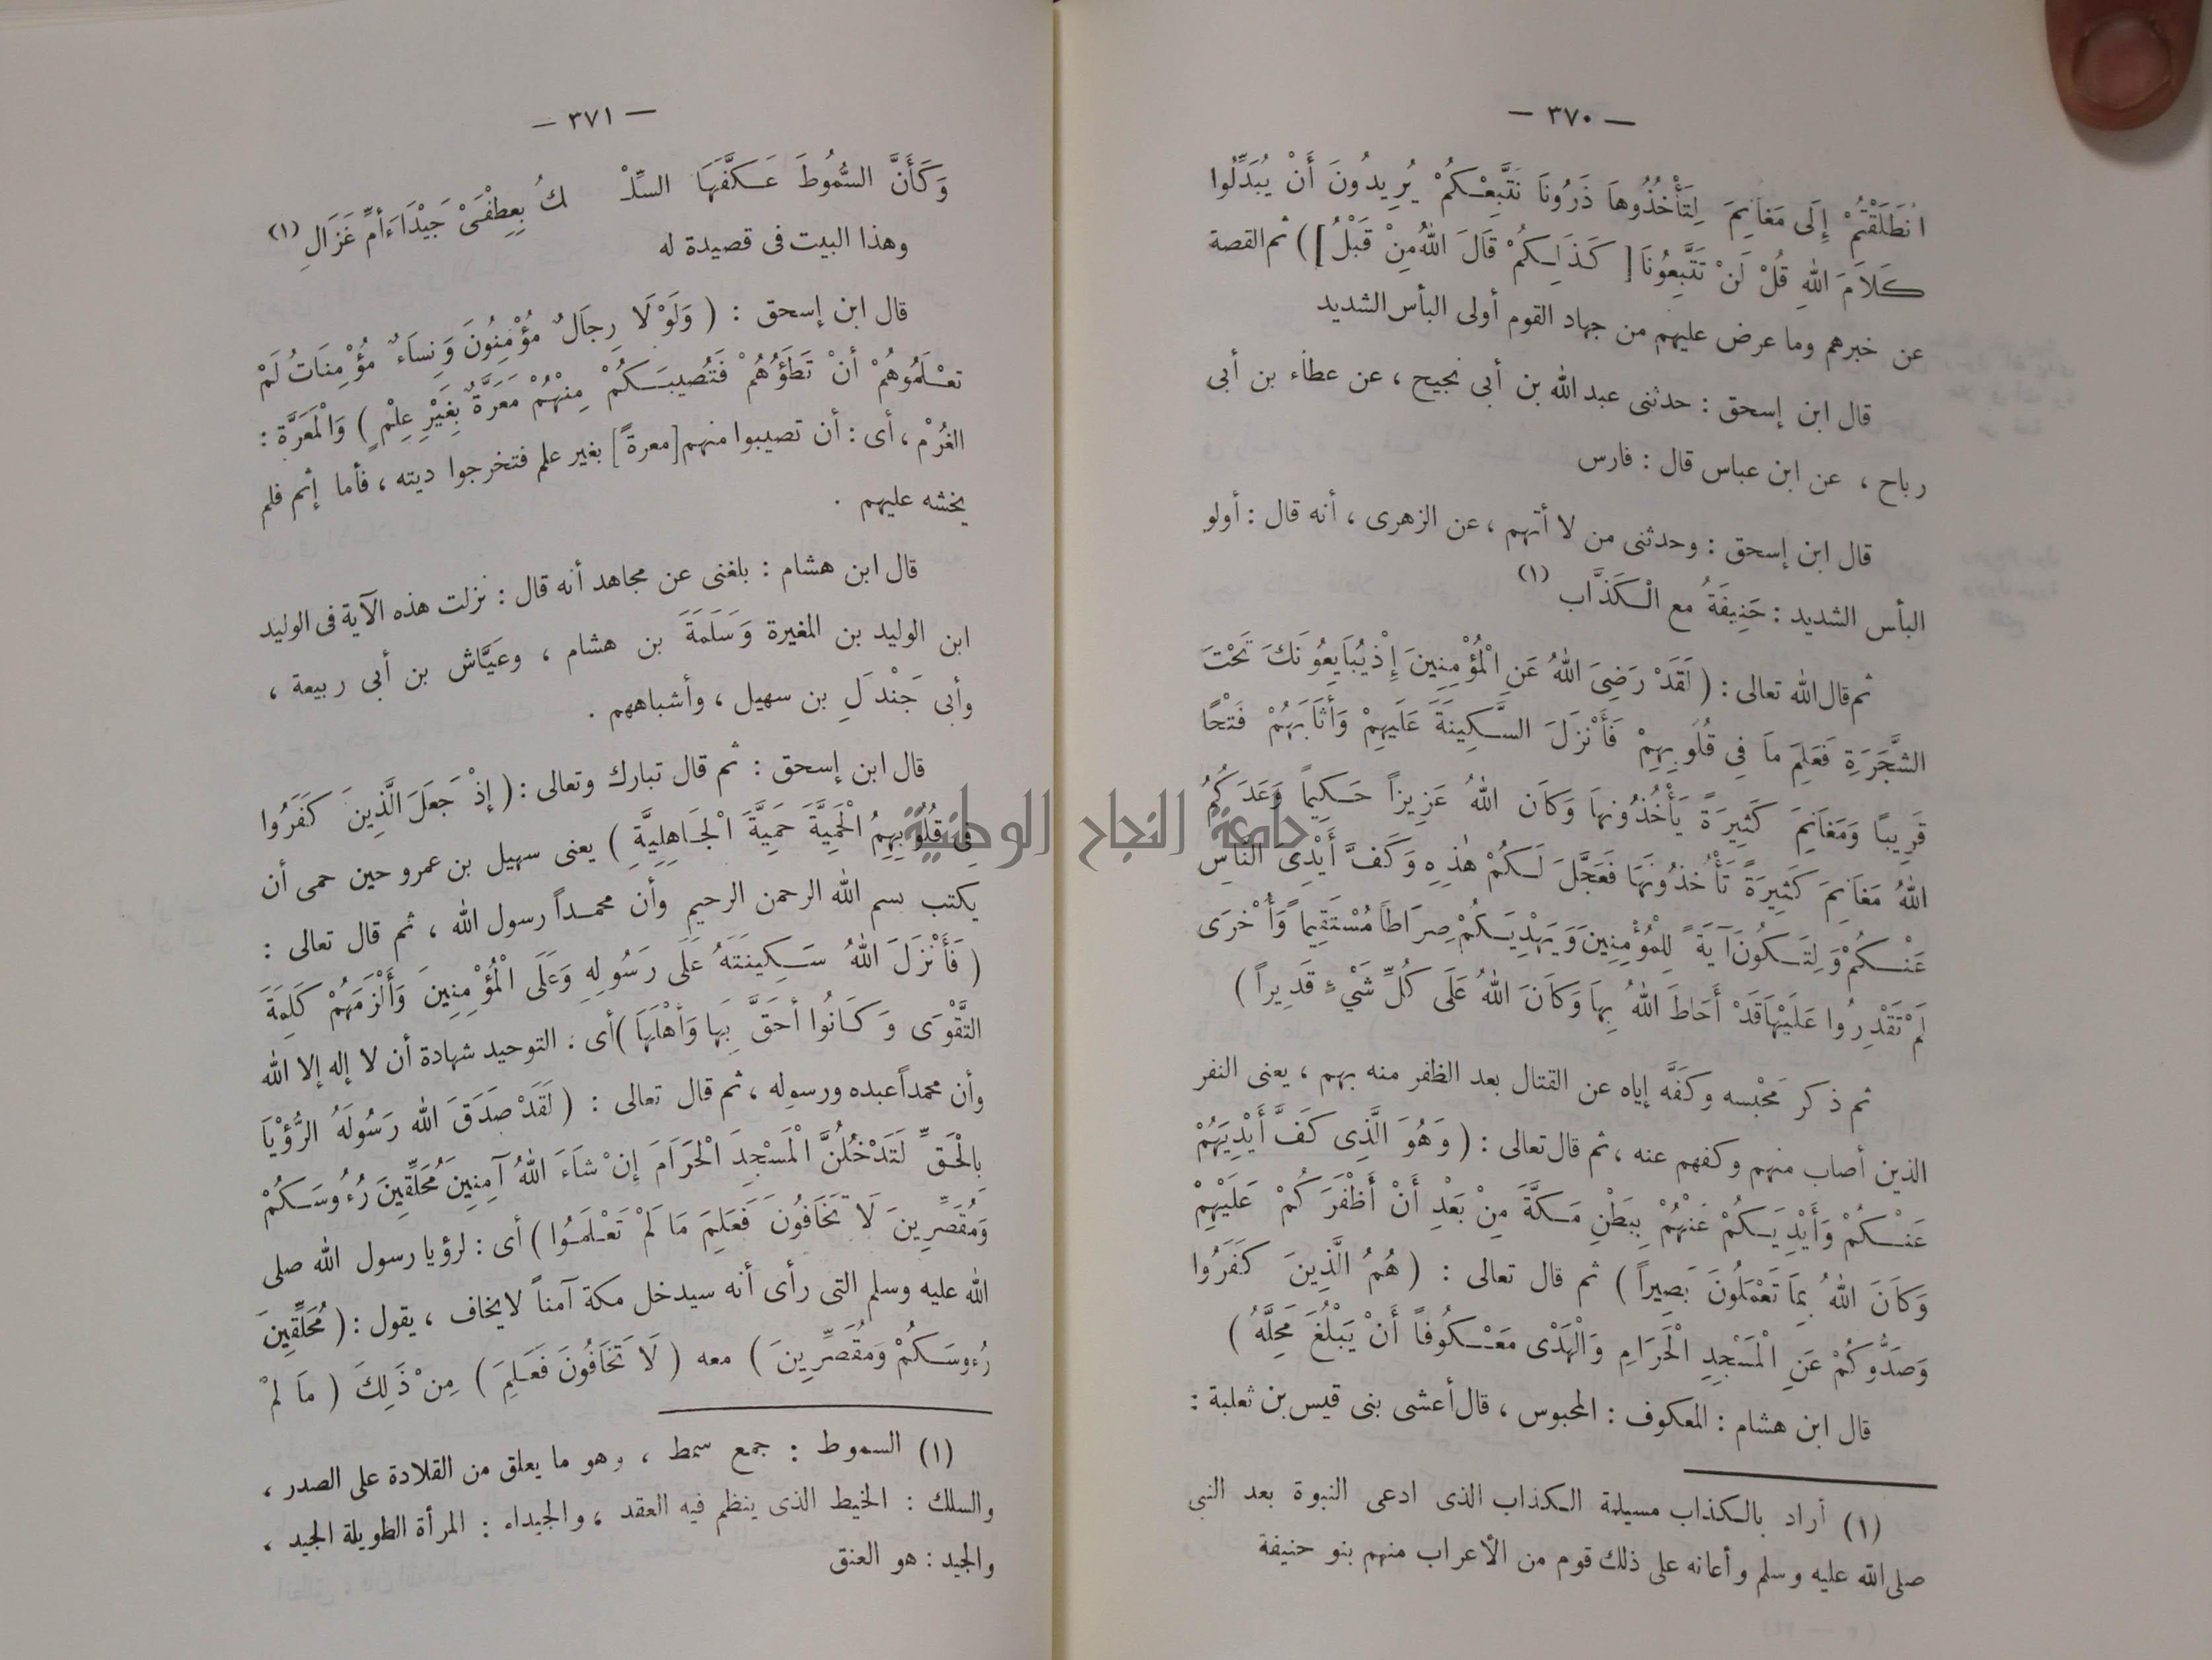 — ٣٧٠ —
انْطَلَقْتُمْ إِلَى مَغَانِمَ لِتَأْخُذُوهَا ذَرُونَا نَتَّبِعْكُمْ يُرِيدُونَ أَنْ يُبَدِّلُوا
كَلَامَ اللهِ قُلْ لَنْ تَتَّبِعُونَا [ كَذَلِكُمْ قَالَ اللهُ مِنْ قَبْلُ ] ) ثم القصة
عن خبرهم وما عرض عليهم من جهاد القوم أولى البأس الشديد
قال ابن إسحق : حدثنى عبد الله بن أبى نجيح ، عن عطاء بن أبى
رباح ، عن ابن عباس قال : فارس
قال ابن إسحق : وحدثنى من لا أتهم ، عن الزهرى ، أنه قال : أولو
البأس الشديد : حَنِيفَةُ مع الْكَذَّاب (١)
ثم قال الله تعالى : ( لَقَدْ رَضِىَ اللهُ عَنِ الْمُؤْمِنِينَ إِذْ يُبَايِعُونَكَ تَحْتَ
الشَّجَرَةِ فَعَلِمَ مَا فِى قُلُوبِهِمْ فَأَنْزَلَ السَّكِينَةَ عَلَيْهِمْ وَأَثَابَهُمْ فَتْحًا
قَرِيبًا وَمَغَانِمَ كَثِيرَةً يَأْخُذُونَهَا وَكَانَ اللهُ عَزِيزاً حَكِيماً وَعَدَكُمُ
اللهُ مَغَانِمَ كَثِيرَةً تَأْخُذُونَهَا فَعَجَّلَ لَكُمْ هٰذِهِ وَكَفَّ أَيْدِىَ النَّاسِ
عَنْكُمْ وَلِتَكُونَ آيَةً لِلْمُؤْمِنِينَ وَيَهْدِيَكُمْ صِرَاطاً مُسْتَقِيماً وَأُخْرَى
لَمْ تَقْدِرُوا عَلَيْهَا قَدْ أَحَاطَ اللهُ بِهَا وَكَانَ اللهُ عَلَى كُلِّ شَىْءٍ قَدِيراً )
ثم ذكر مَحْبِسه وكَفَّه إياه عن القتال بعد الظفر منه بهم ، يعنى النفر
الذين أصاب منهم وكفهم عنه ، ثم قال تعالى : ( وَهُوَ الَّذِى كَفَّ أَيْدِيَهُمْ
عَنْكُمْ وَأَيْدِيَكُمْ عَنْهُمْ بِبَطْنِ مَكَّةَ مِنْ بَعْدِ أَنْ أَظْفَرَكُمْ عَلَيْهِمْ
وَكَانَ اللهُ بِمَا تَعْمَلُونَ بَصِيراً ) ثم قال تعالى : ( هُمُ الَّذِينَ كَفَرُوا
وَصَدُّوكُمْ عَنِ الْمَسْجِدِ الْحَرَامِ وَالْهَدْىَ مَعْكُوفاً أَنْ يَبْلُغَ مَحِلَّهُ )
قال ابن هشام : المعكوف : المحبوس ، قال أعشى بنى قيس بن ثعلبة :
(١) أراد بالكذاب مسيلمة الكذاب الذى ادعى النبوة بعد النبى
صلى الله عليه وسلم وأعانه على ذلك قوم من الأعراب منهم بنو حنيفة
— ٣٧١ —
وَكَأَنَّ السُّمُوطَ عَكَّفَهَا السِّلْـ كُ بِعِطْفَىْ جَيْدَاءَ أُمِّ غَزَالِ (١)
وهذا البيت فى قصيدة له
قال ابن إسحق : ( وَلَوْلَا رِجَالٌ مُؤْمِنُونَ وَنِسَاءٌ مُؤْمِنَاتٌ لَمْ
تَعْلَمُوهُمْ أَنْ تَطَؤُهُمْ فَتُصِيبَكُمْ مِنْهُمْ مَعَرَّةٌ بِغَيْرِ عِلْمٍ ) وَالْمَعَرَّة :
الغُرْم ، أى : أن تصيبوا منهم [ معرةً ] بغير علم فتخرجوا ديته ، فأما إثم فلم
يخشه عليهم .
قال ابن هشام : بلغنى عن مجاهد أنه قال : نزلت هذه الآية فى الوليد
ابن الوليد بن المغيرة وَسَلَمَةَ بن هشام ، وعَيَّاش بن أبى ربيعة ،
وأبى جَنْدَلِ بن سهيل ، وأشباههم .
قال ابن إسحق : ثم قال تبارك وتعالى : ( إِذْ جَعَلَ الَّذِينَ كَفَرُوا
فِى قُلُوبِهِمُ الْحَمِيَّةَ حَمِيَّةَ الْجَاهِلِيَّةِ ) يعنى سهيل بن عمرو حين حمى أن
يكتب بسم الله الرحمن الرحيم وأن محمداً رسول الله ، ثم قال تعالى :
( فَأَنْزَلَ اللهُ سَكِينَتَهُ عَلَى رَسُولِهِ وَعَلَى الْمُؤْمِنِينَ وَأَلْزَمَهُمْ كَلِمَةَ
التَّقْوَى وَكَانُوا أَحَقَّ بِهَا وَأَهْلَهَا ) أى : التوحيد شهادة أن لا إله إلا الله
وأن محمداً عبده ورسوله ، ثم قال تعالى : ( لَقَدْ صَدَقَ الله رَسُولَهُ الرُّؤْيَا
بِالْحَقِّ لَتَدْخُلُنَّ الْمَسْجِدَ الْحَرَامَ إِنْ شَاءَ اللهُ آمِنِينَ مُحَلِّقِينَ رُءُوسَكُمْ
وَمُقَصِّرِينَ لَا تَخَافُونَ فَعَلِمَ مَا لَمْ تَعْلَمُوا ) أى : لرؤيا رسول الله صلى
الله عليه وسلم التى رأى أنه سيدخل مكة آمناً لا يخاف ، يقول : ( مُحَلِّقِينَ
رُءوسَكُمْ وَمُقَصِّرِينَ ) معه ( لَا تَخَافُونَ فَعَلِمَ ) مِنْ ذَلِكَ ( مَا لَمْ
(١) السموط : جمع سمط ، وهو ما يعلق من القلادة على الصدر ،
والسلك : الخيط الذى ينظم فيه العقد ، والجيداء : المرأة الطويلة الجيد ،
والجيد : هو العنق
جامعة النجاح الوطنية